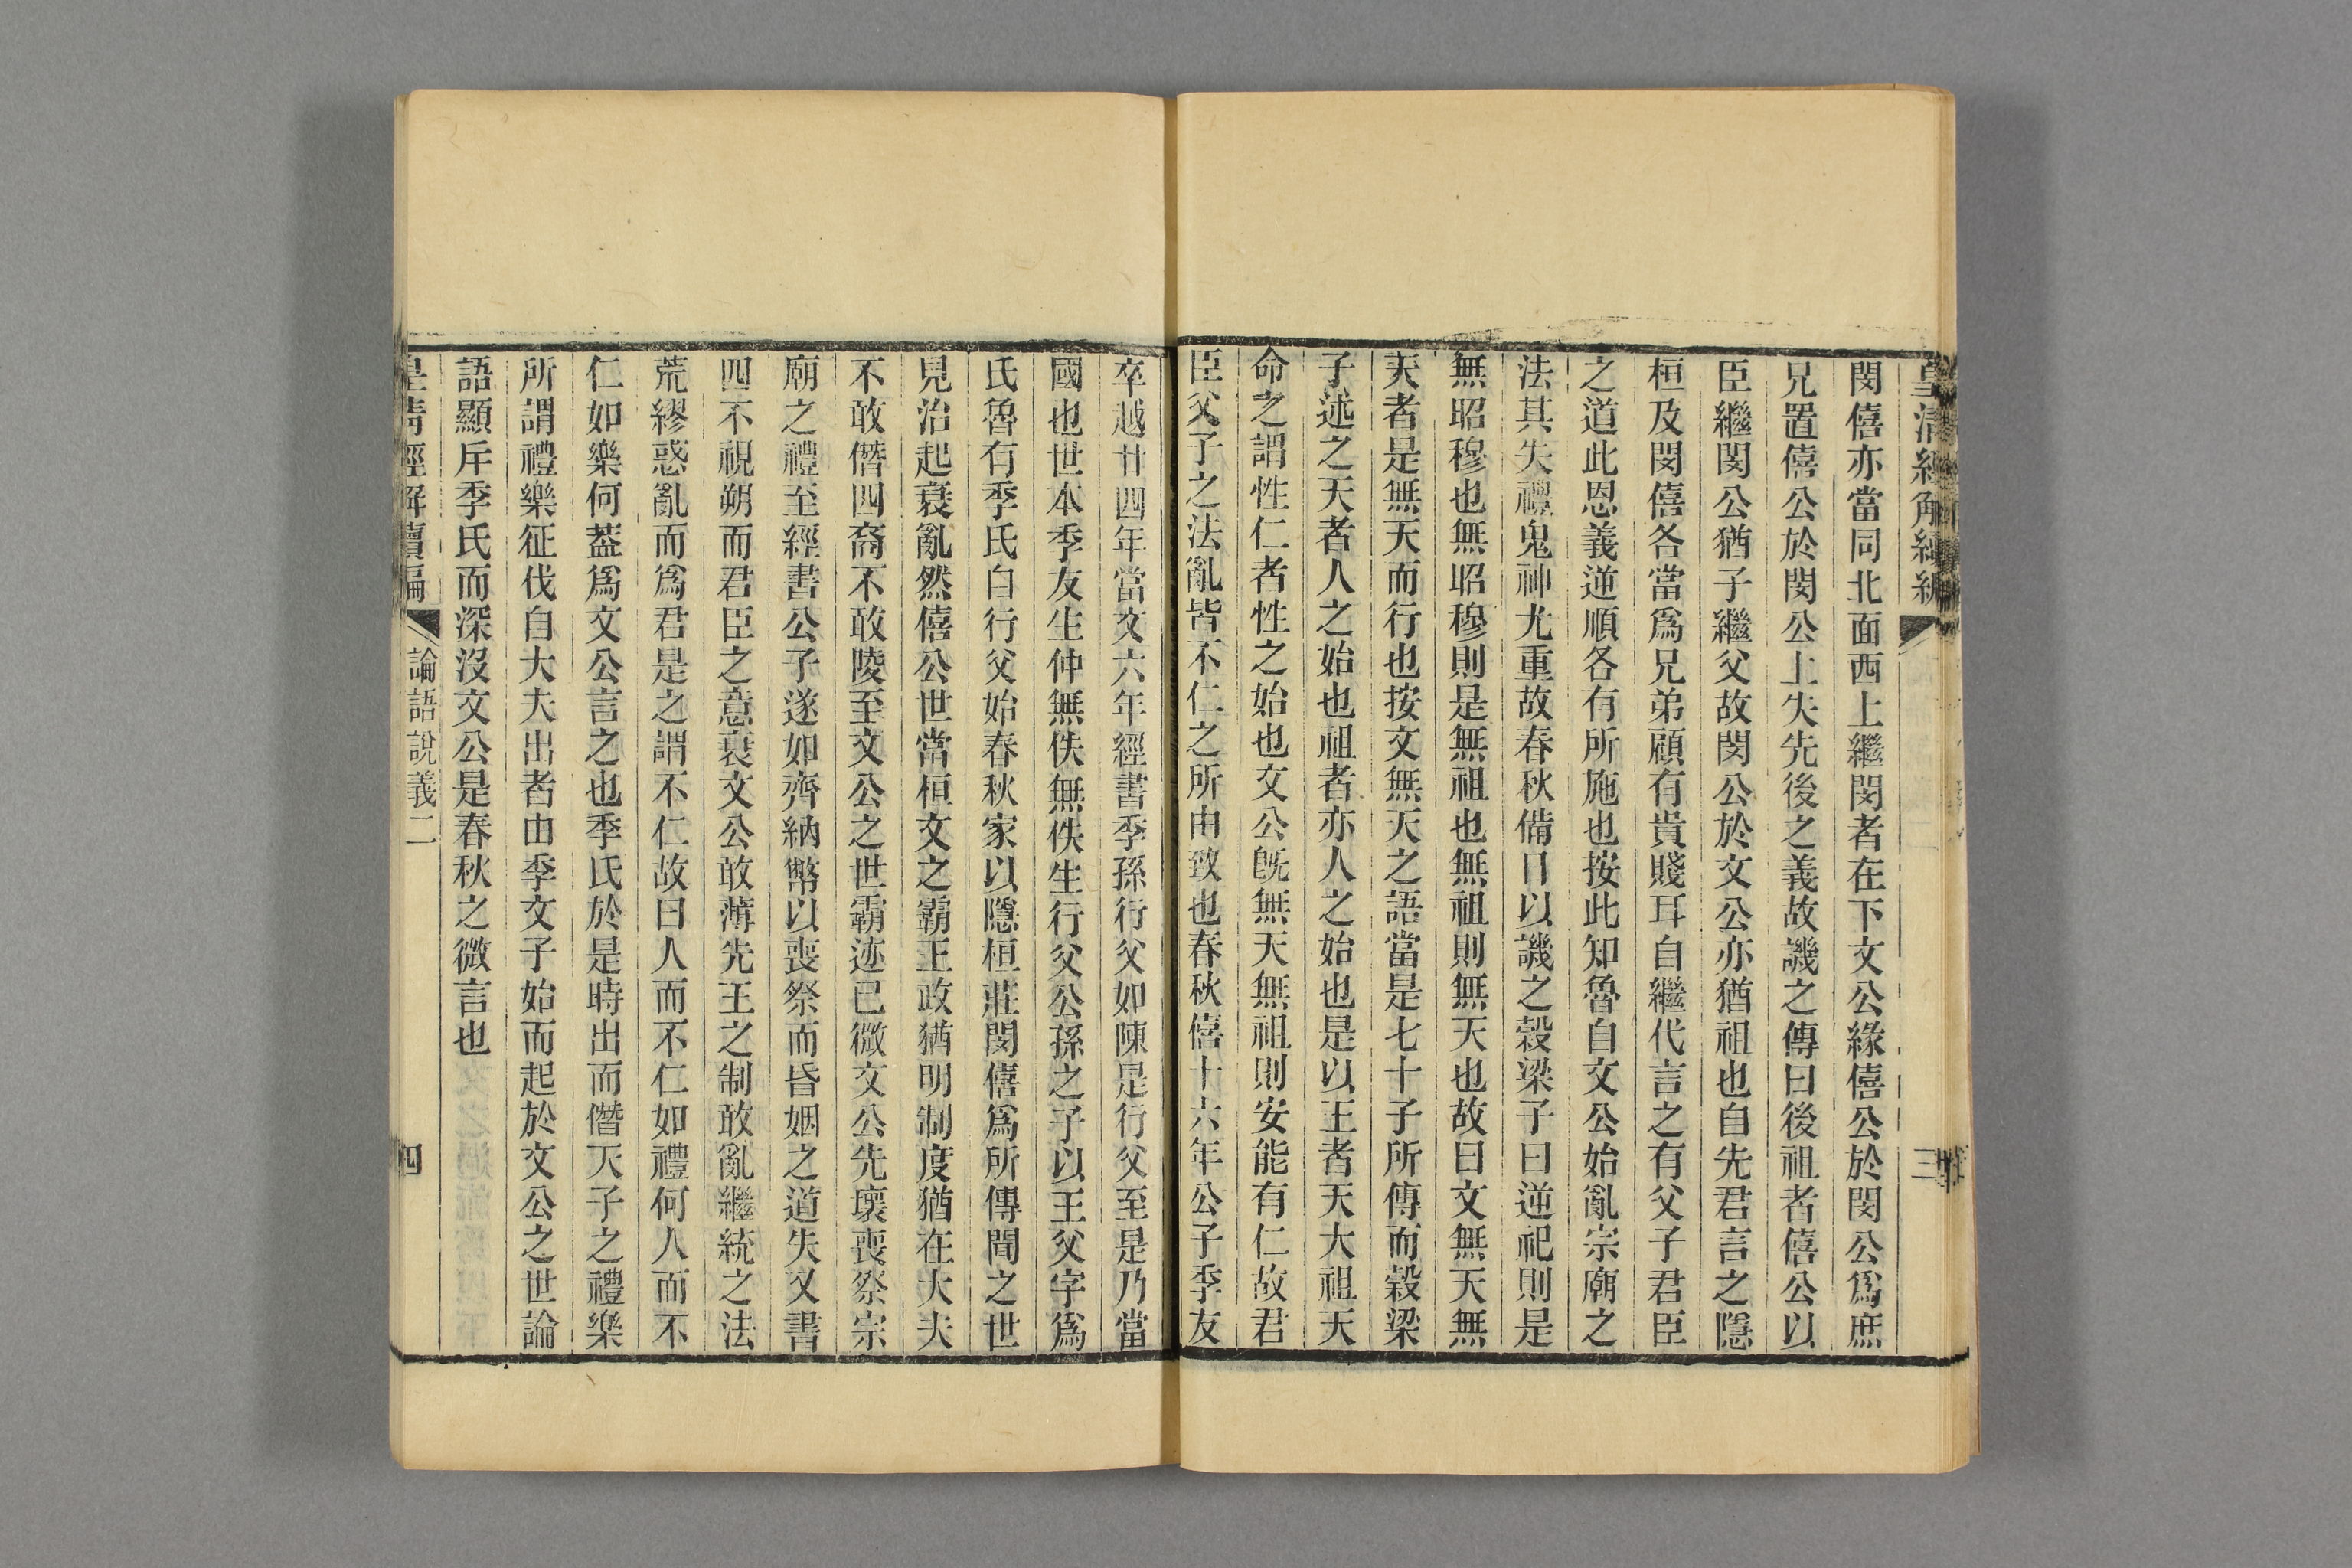 皇清經解續編
三
閔僖亦當同北面西上繼閔者在下文公緣僖公於閔公爲庶
兄置僖公於閔公上失先後之義故譏之傳曰後祖者僖公以
臣繼閔公猶子繼父故閔公於文公亦猶祖也自先君言之隱
桓及閔僖各當爲兄弟顧有貴賤耳自繼代言之有父子君臣
之道此恩義逆順各有所施也按此知魯自文公始亂宗廟之
法其失禮鬼神尤重故春秋備日以譏之穀梁子曰逆祀則是
無昭穆也無昭穆則是無祖也無祖則無天也故曰文無天無
天者是無天而行也按文無天之語當是七十子所傳而穀梁
子述之天者人之始也祖者亦人之始也是以王者天大祖天
命之謂性仁者性之始也文公旣無天無祖則安能有仁故君
臣父子之法亂皆不仁之所由致也春秋僖十六年公子季友
卒越廿四年當文六年經書季孫行父如陳是行父至是乃當
國也世本季友生仲無佚無佚生行父公孫之子以王父字爲
氏魯有季氏自行父始春秋家以隱桓莊閔僖爲所傳聞之世
見治起衰亂然僖公世當桓文之霸王政猶明制度猶在大夫
不敢僭四裔不敢陵至文公之世霸迹已微文公先壞喪祭宗
廟之禮至經書公子遂如齊納幣以喪祭而昏姻之道失又書
四不視朔而君臣之意衰文公敢薄先王之制敢亂繼統之法
荒繆惑亂而爲君是之謂不仁故曰人而不仁如禮何人而不
仁如樂何葢爲文公言之也季氏於是時出而僭天子之禮樂
所謂禮樂征伐自大夫出者由季文子始而起於文公之世論
語顯斥季氏而深沒文公是春秋之微言也
皇清經解續編
論語說義二
四